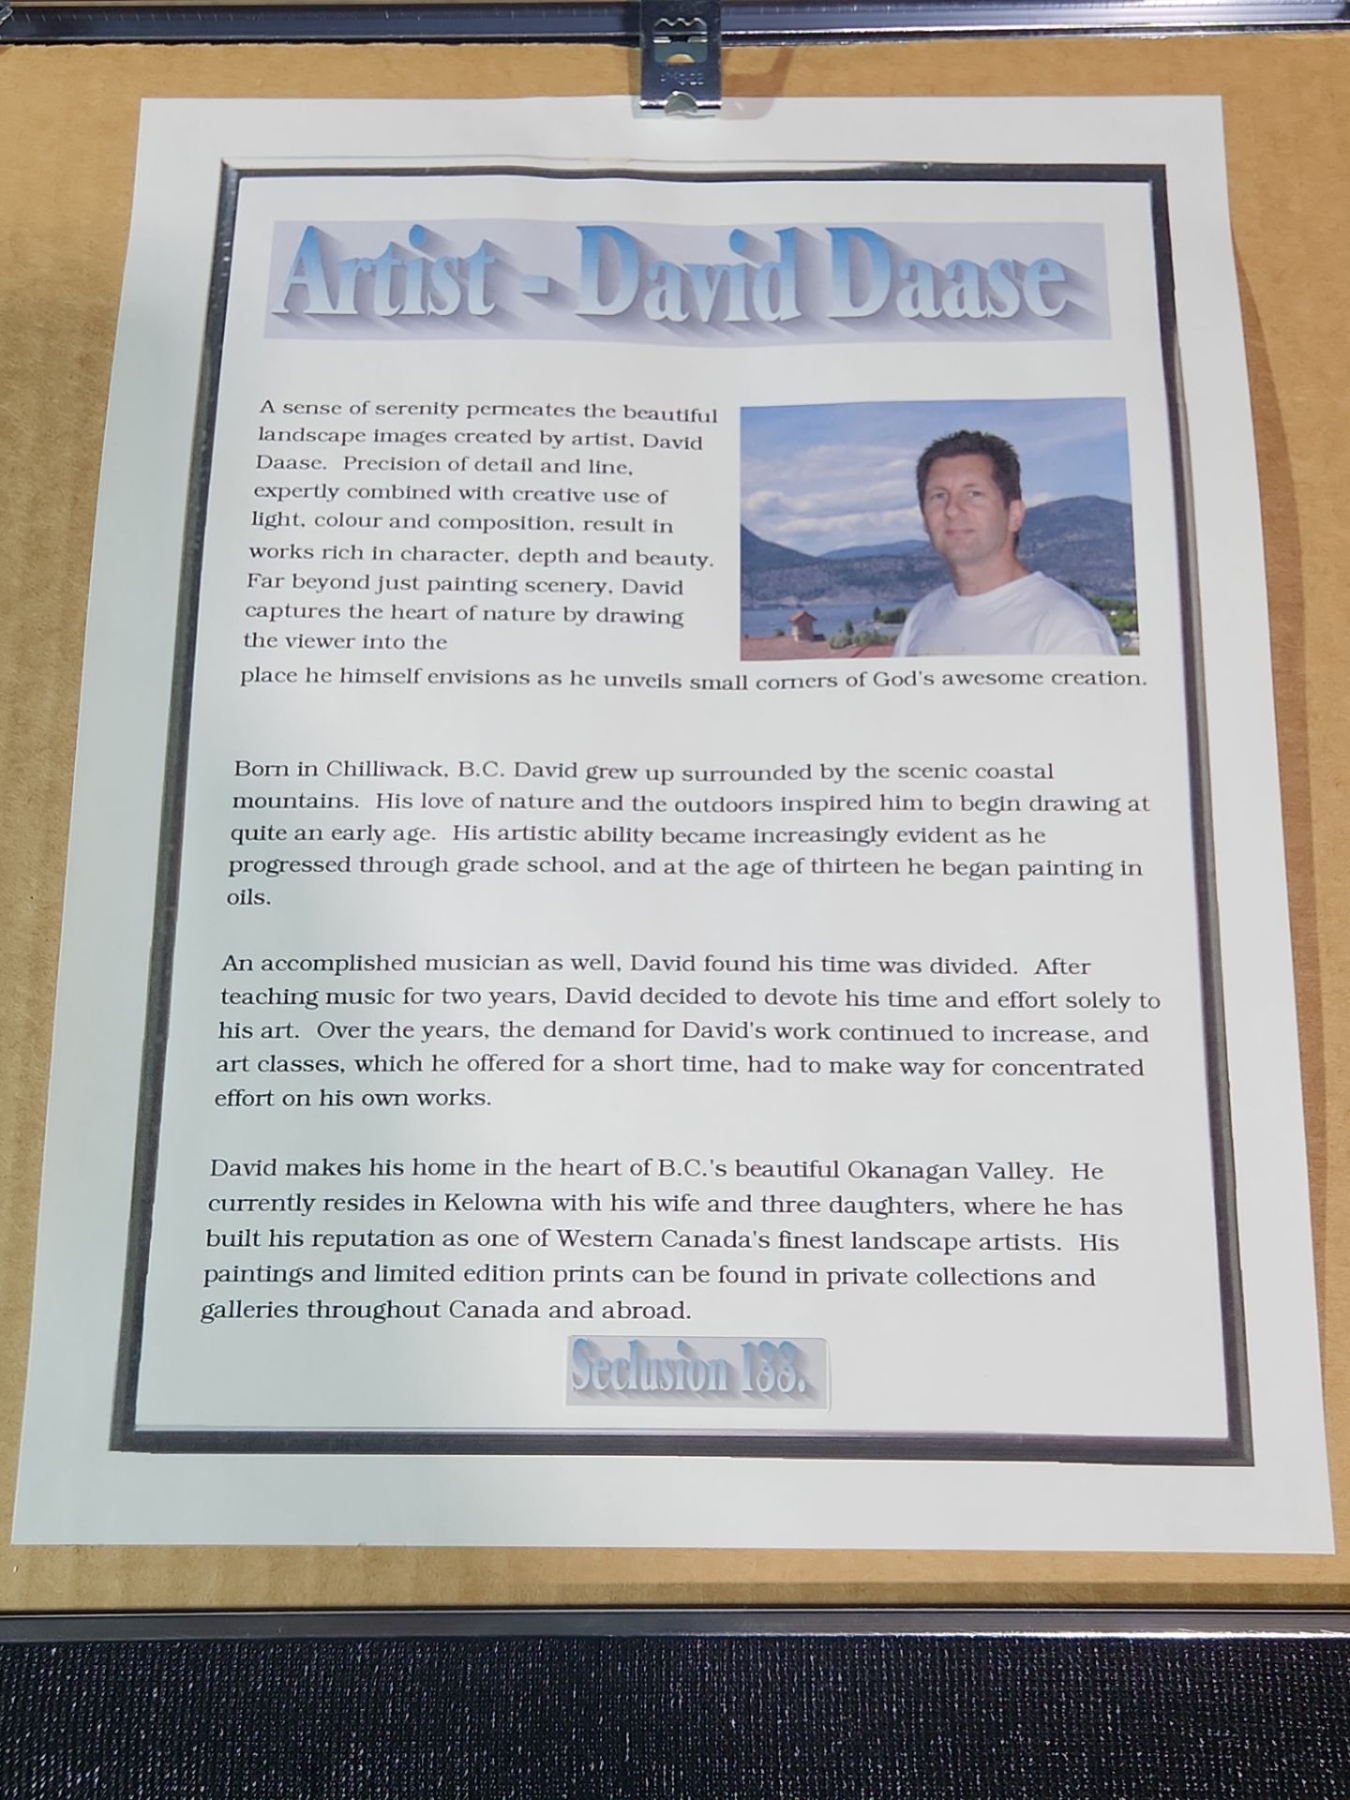 Artist - David Daase
A sense of serenity permeates the beautiful
landscape images created by artist, David
Daase. Precision of detail and line,
expertly combined with creative use of
light, colour and composition, result in
works rich in character, depth and beauty.
Far beyond just painting scenery, David
captures the heart of nature by drawing
the viewer into the
place he himself envisions as he unveils small corners of God's awesome creation.
Born in Chilliwack, B.C. David grew up surrounded by the scenic coastal
mountains. His love of nature and the outdoors inspired him to begin drawing at
quite an early age. His artistic ability became increasingly evident as he
progressed through grade school, and at the age of thirteen he began painting in
oils.
An accomplished musician as well, David found his time was divided. After
teaching music for two years, David decided to devote his time and effort solely to
his art. Over the years, the demand for David's work continued to increase, and
art classes, which he offered for a short time, had to make way for concentrated
effort on his own works.
David makes his home in the heart of B.C.'s beautiful Okanagan Valley. He
currently resides in Kelowna with his wife and three daughters, where he has
built his reputation as one of Western Canada's finest landscape artists. His
paintings and limited edition prints can be found in private collections and
galleries throughout Canada and abroad.
Seclusion 133.